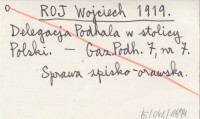 ROJ Wojciech 1919.
Delegacja Podhala w stolicy
Polski. — Gaz. Podh. 7, nr 7.
Sprawa spisko-orawska.